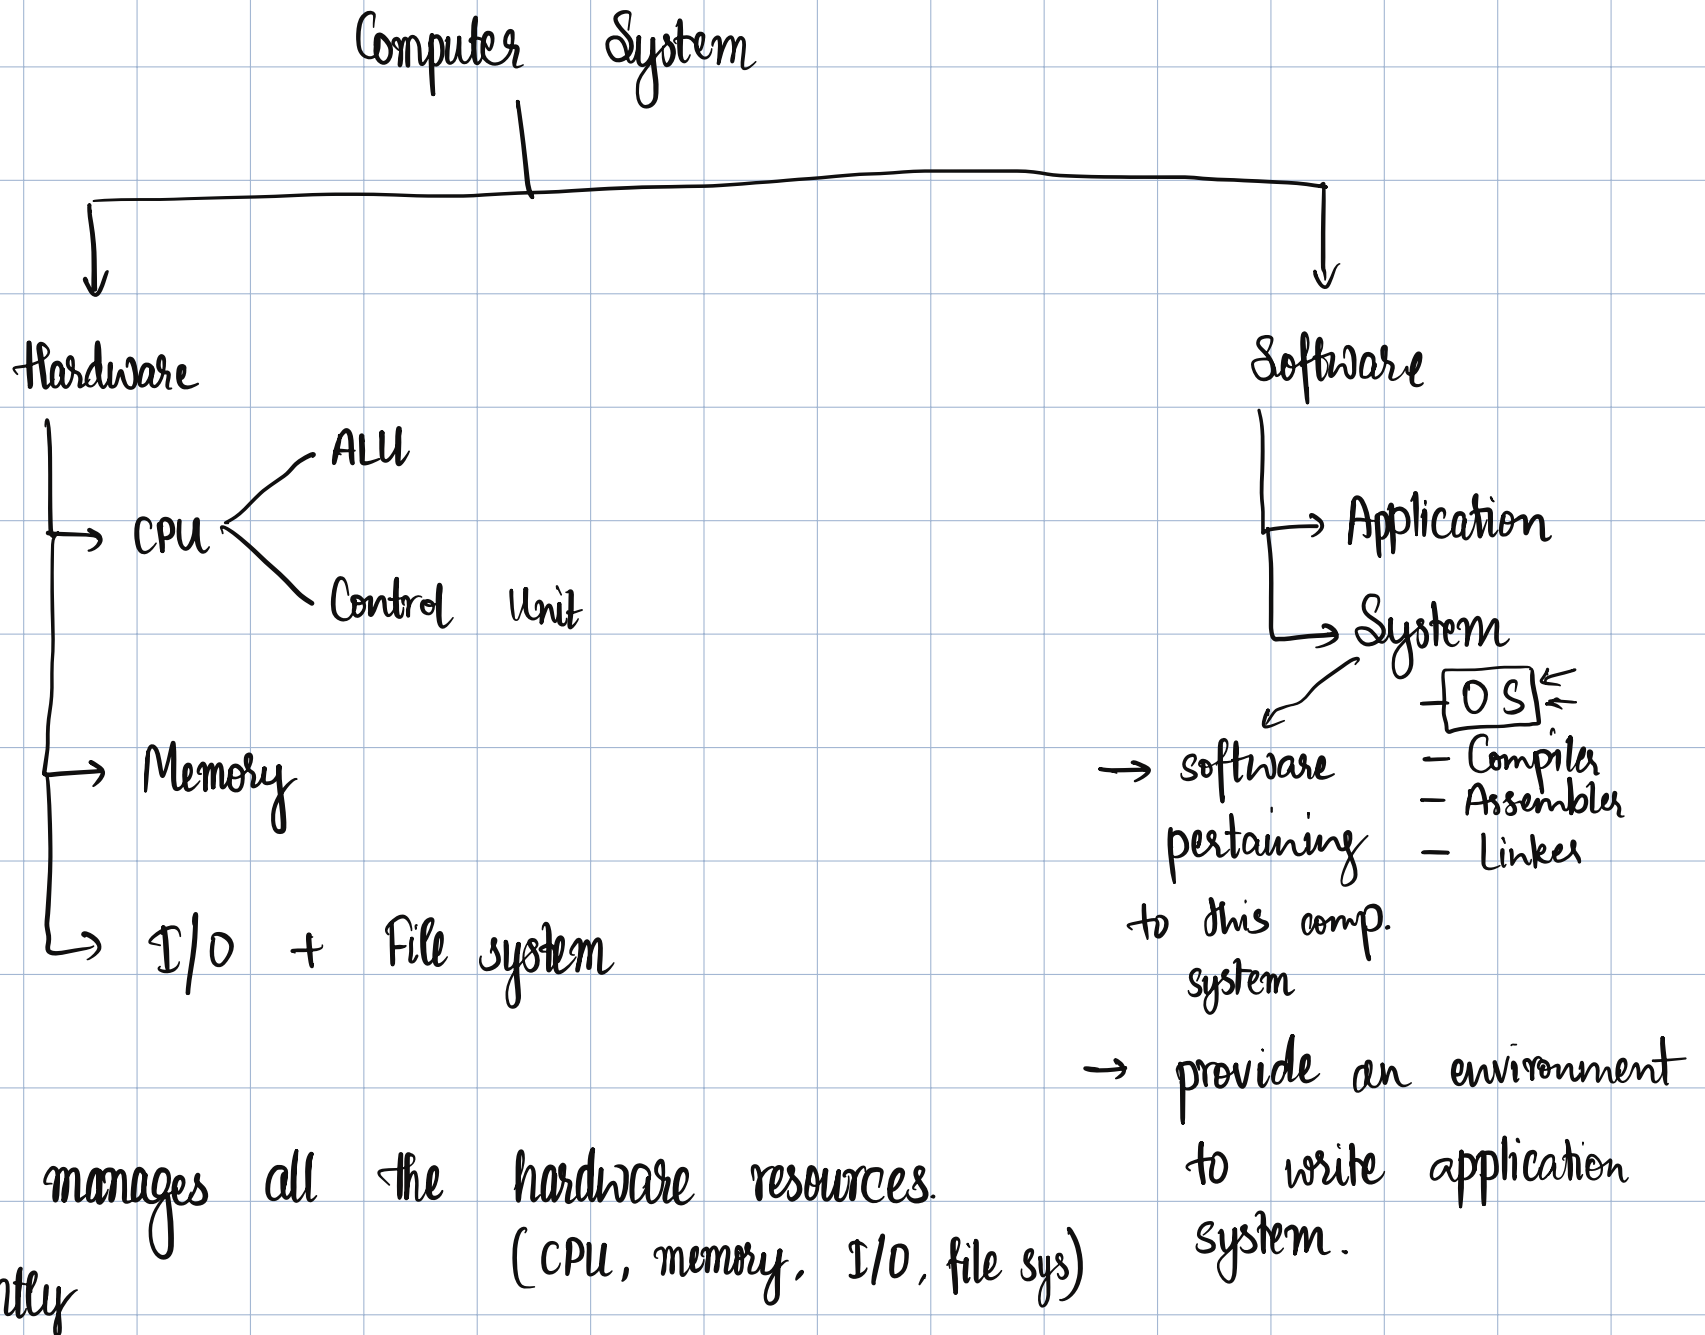 Computer System
Hardware
Software
ALU
CPU
Control Unit
Memory
I/O + File system
Application
System
- OS
- Compiler
- Assembler
- Linker
→ software
pertaining
to this comp.
system
→ provide an environment
to write application
system.
manages all the hardware resources.
(CPU, memory, I/O, file sys)
ntly